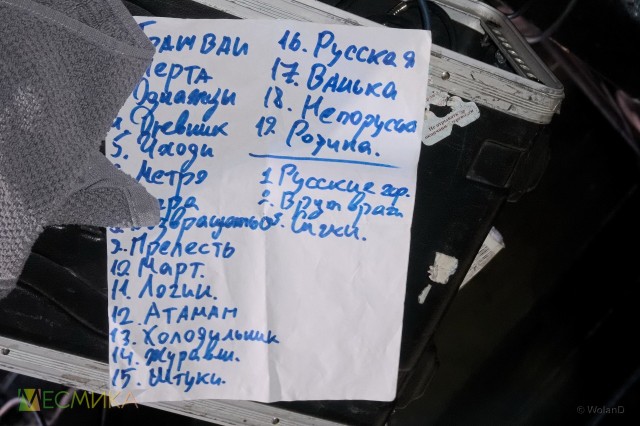 Трамваи
Черта
Однажды
4. Дневник
5. Уходи
Метря
Возвращаться
9. Прелесть
10. Март.
11. Логин.
12. Атаман
13. Холодильник
14. Журавл.
15. Штуки.
16. Русская
17. Ванька
18. Непорусьа
19. Родина.
1. Русские гор.
2. Вруг враги
3. Сигки.
МЕСМИКА
© WolanD